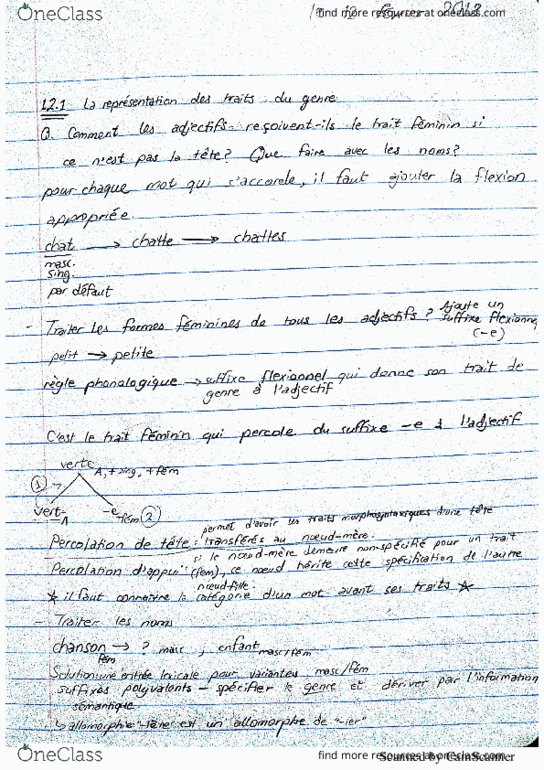 OneClass
find more resources at oneclass.com
2018
1.2.1 La représentation des traits du genre
Q. Comment les adjectifs reçoivent-ils le trait féminin si
ce n'est pas la tête? Que faire avec les noms?
pour chaque mot qui s'accorde, il faut ajouter la flexion
appropriée
chat → chatte → chattes
masc.
sing.
par défaut
- Traiter les formes féminines de tous les adjectifs? Ajoute un
suffixe flexionnel
(-e)
petit → petite
règle phonologique → suffixe flexionnel qui donne son trait de
genre à l'adjectif
C'est le trait féminin qui percole du suffixe -e à l'adjectif
verte A, + sing, + fém
① →
vert- A -e fém ②
Percolation de tête: permet d'avoir les traits morphosyntaxiques d'une tête
transférés au nœud-mère.
Percolation d'appui: si le nœud-mère demeure non-spécifié pour un trait
(fém), ce nœud hérite cette spécification de l'autre
nœud-fille.
★ il faut connaître la catégorie d'un mot avant ses traits ★
- Traiter les noms
chanson fém → ? masc ; enfant masc/fém
Solution: une entrée lexicale pour variantes masc/fém
suffixes polyvalents - spécifier le genre et dériver par l'information
sémantique
↳ allomorphie "-ière" est un allomorphe de "-ier"
OneClass
find more resources at oneclass.com
Scanned by CamScanner